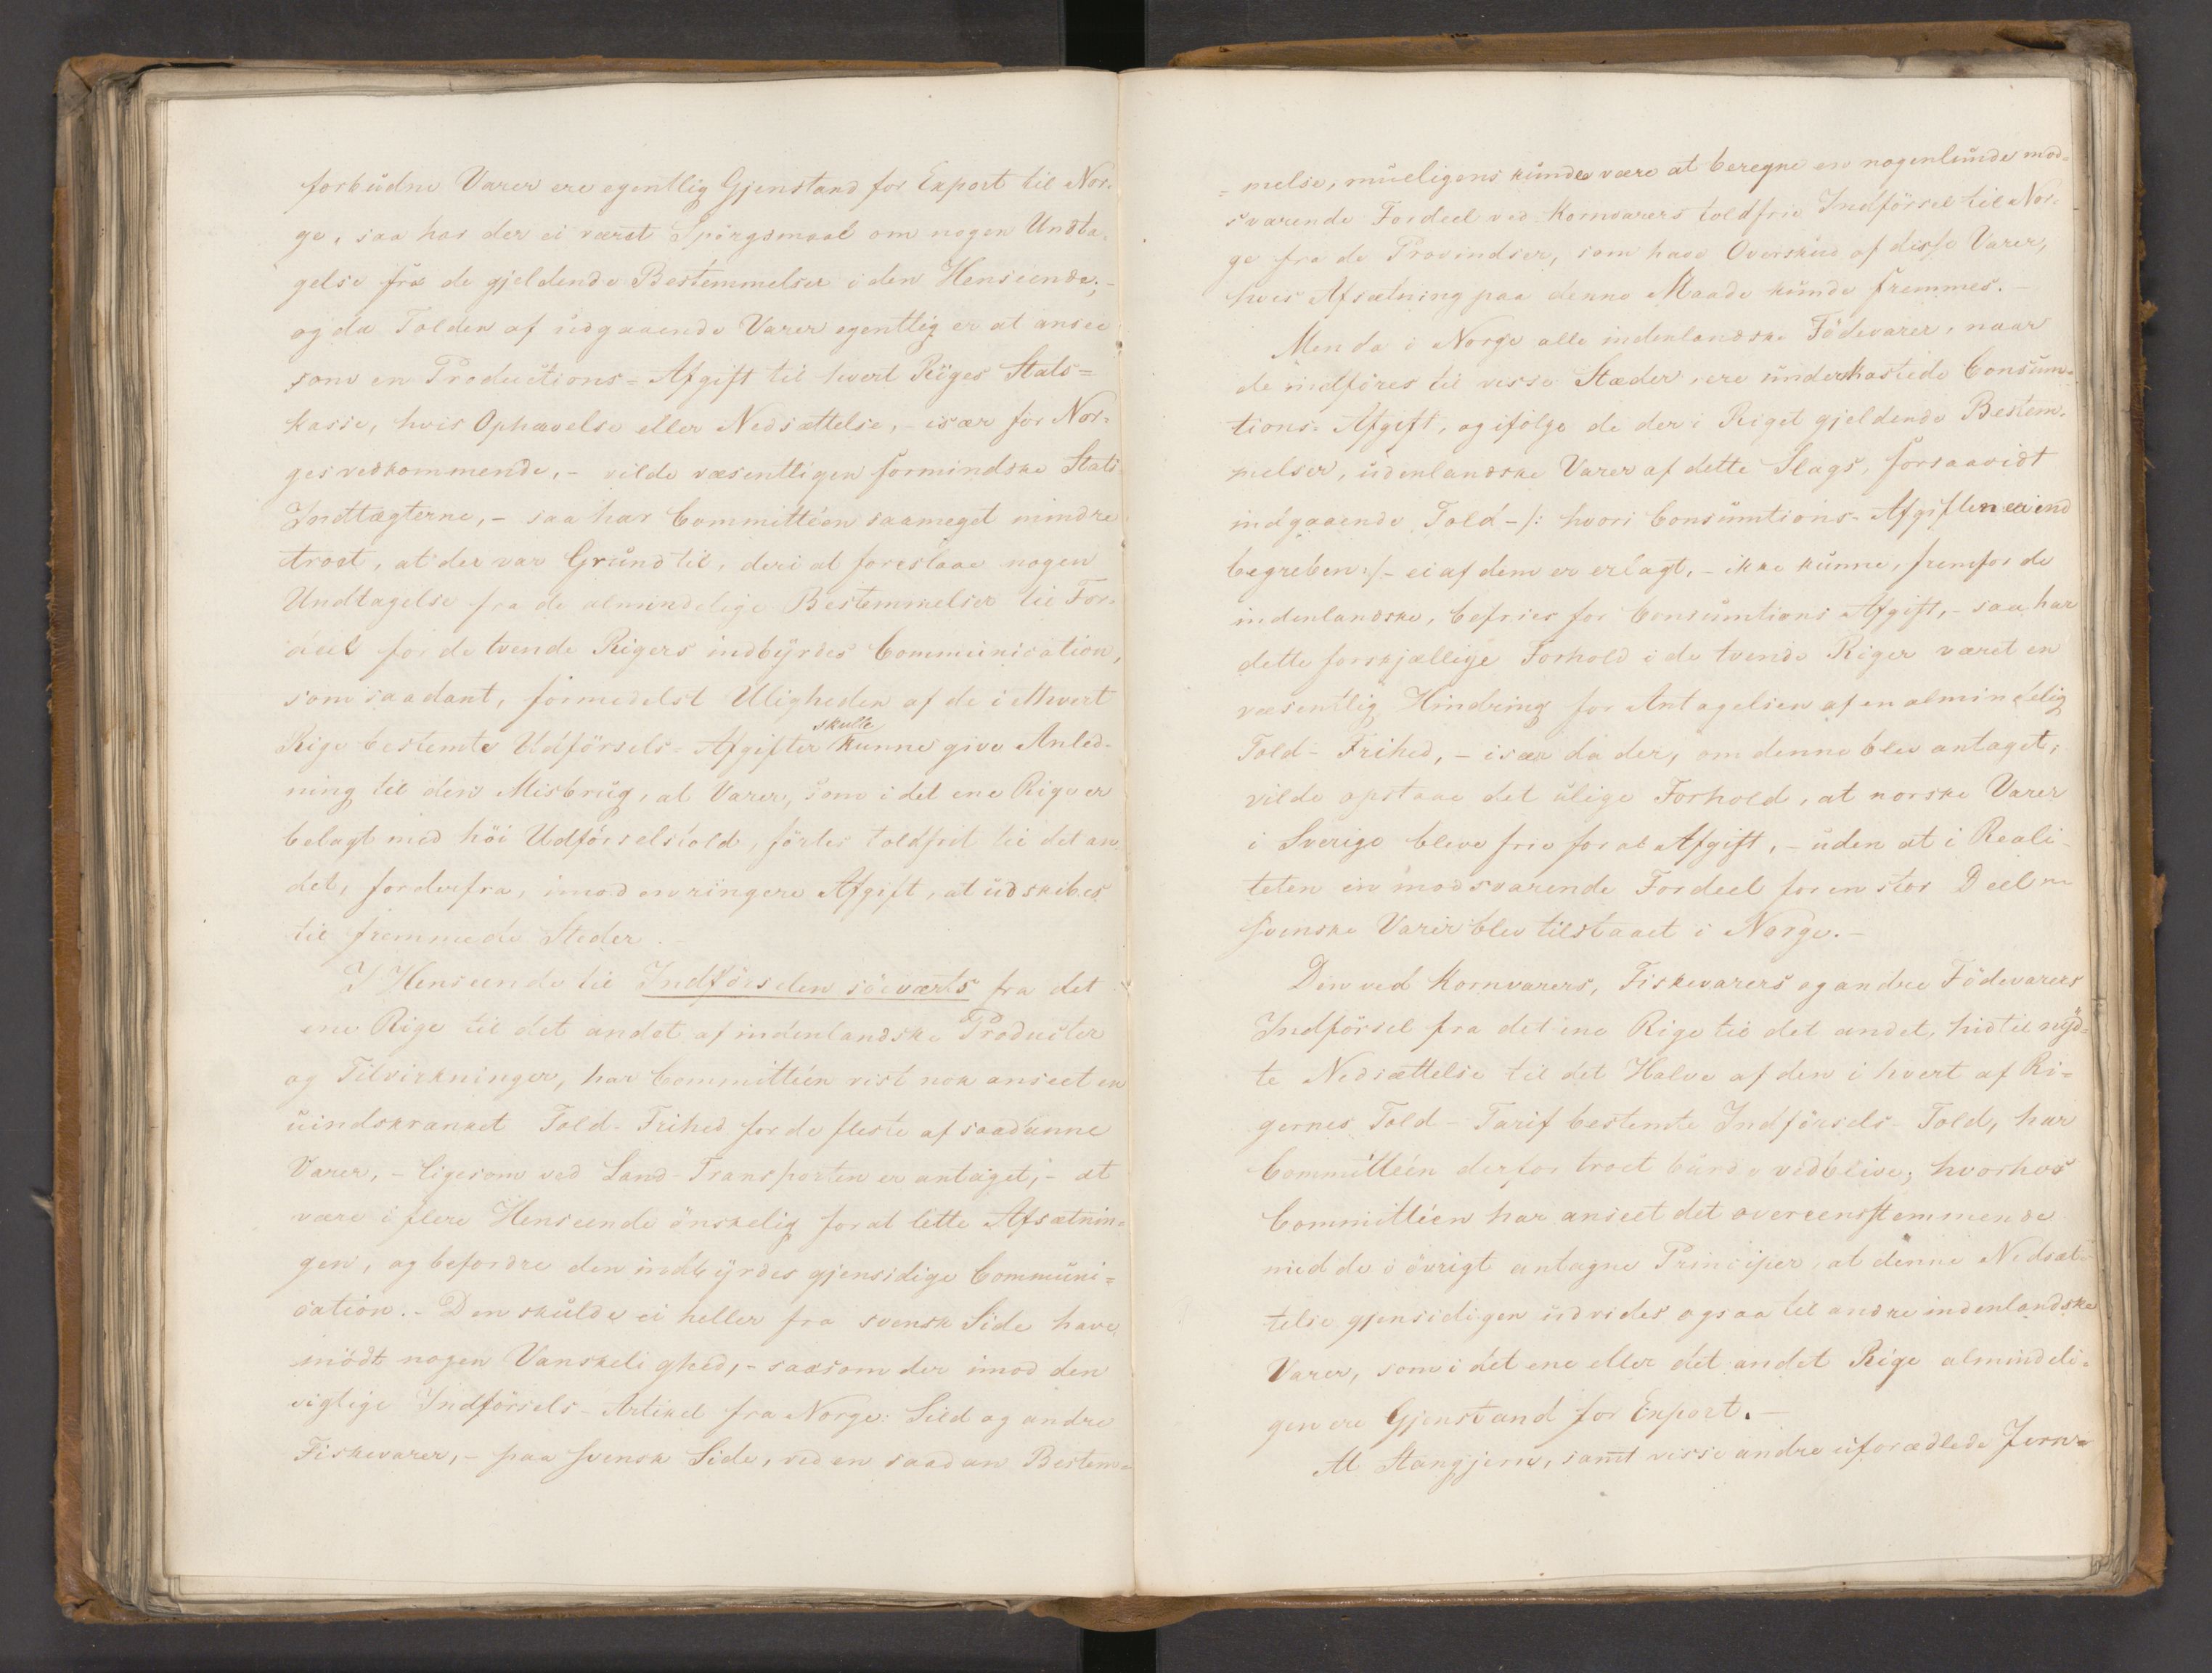 forbudne Varer ere egentlig Gjenstand for Export til Nor-
ge, saa har der ei været Spörgsmaal om nogen Undta-
gelse fra de gjeldende Bestemmelser i den Henseende; -
og da Tolden af udgaaende Varer egentlig er at ansee
som en Productions-Afgift til hvert Riges Stats=
kasse, hvis Ophævelse eller Nedsættelse, - især for Nor-
ges vedkommende, - vilde væsentligen formindske Stats
Indtægterne, - saa har Committéen saameget mindre
troet, at der var Grund til, deri at foreslaae nogen
Undtagelse fra de almindelige Bestemmelser til For-
deel for de tvende Rigers indbyrdes Communication,
som saadant, formedelst Uligheden af de i ethvert
Rige bestemte Udförsels-Afgifter skulle kunne give Anled-
ning til den Misbrug, at Varer, som i det ene Rige er
belagt med höi Udförselstold, förtes toldfrit til det an-
det, for derfra, imod en ringere Afgift, at udskibes
til fremmede Steder.
I Henseende til Indförselen söeværts fra det
ene Rige til det andet af indenlandske Producter
og Tilvirkninger, har Committéen vist nok anseet en
uindskrænket Told-Frihed for de fleste af saadanne
Varer, - ligesom ved Land-Transporten er antaget, - at
være i flere Henseende önskelig for at lette Afsætnin-
gen, og befordre den indbyrdes gjensidige Communi=
cation. - Den skulde ei heller fra svensk Side have
mödt nogen Vanskelighed, - saasom der imod den
vigtige Indförsels-Artikel fra Norge: Sild og andre
Fiskevarer, - paa svensk Side, ved en saadan Bestem-
=melse, mueligens kunde være at beregne en nogenlunde mod=
svarende Fordeel ved Kornvarers toldfrie Indförsel til Nor-
ge fra de Provindser, som have Overskud af disse Varer,
hvis Afsætning paa denne Maade kunde fremmes. -
Men da i Norge alle indenlandske Födevarer, naar
de indföres til visse Stæder, ere underkastede Consum-
tions-Afgift, og ifölge de der i Riget gjeldende Bestem-
melser, udenlandske Varer af dette Slags, forsaavidt
indgaaende Told - /: hvori Consumtions-Afgiften ei ind
begreben :/ - ei af dem er erlagt, - ikke kunne, fremfor de
indenlandske, befries for Consumtions Afgift, - saa har
dette forskjællige Forhold i de tvende Riger været en
væsentlig Hindring for Antagelsen af en almindelig
Told-Frihed, - især da der, om denne blev antaget,
vilde opstaae det ulige Forhold, at norske Varer
i Sverige bleve frie for al Afgift, - uden at i Reali-
teten en modsvarende Fordeel for en stor Deel
svenske Varer blev tilstaaet i Norge. -
Den ved Kornvarers, Fiskevarers og andre Födevarers
Indförsel fra det ene Rige til det andet, hidtil nyd=
te Nedsættelse til det Halve af den i hvert af Ri=
gernes Told-Tarif bestemte Indförsels-Told, har
Committéen derfor troet burde vedblive; hvorhos
Committéen har anseet det overeensstemmende
med de i övrigt antagne Principer, at denne Nedsæt-
telse gjensidigen udvides ogsaa til andre indenlandske
Varer, som i det ene eller det andet Rige almindeli=
gen ere Gjenstand for Export. -
At Stangjern, samt visse andre uforædlede Jern=